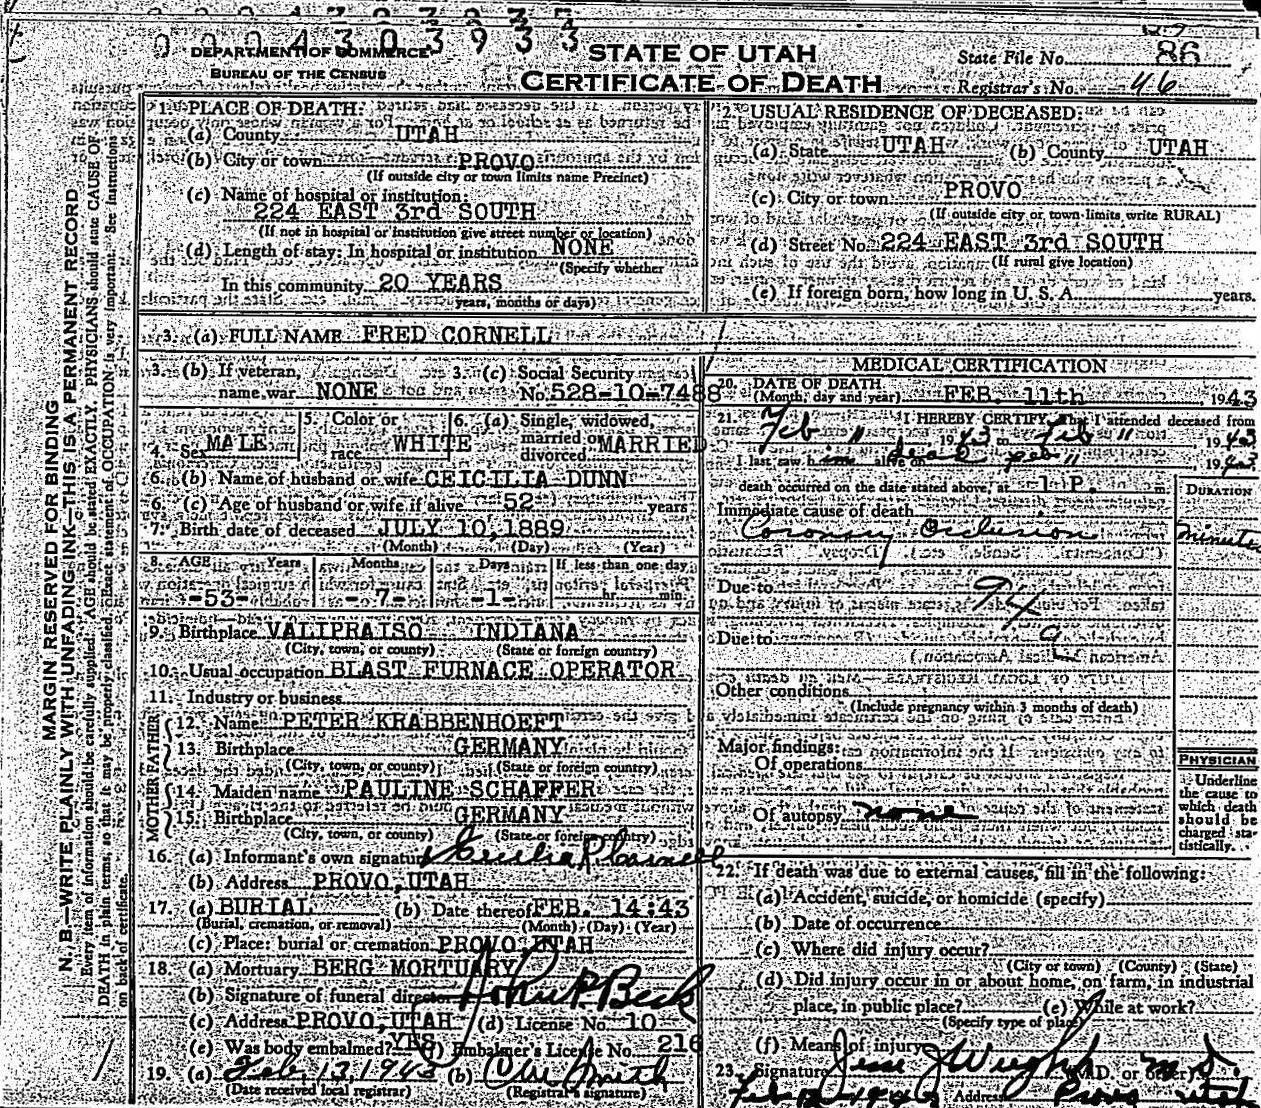 0004303933
DEPARTMENT OF COMMERCE
BUREAU OF THE CENSUS
STATE OF UTAH
CERTIFICATE OF DEATH
State File No. 86
Registrar's No. 46
MARGIN RESERVED FOR BINDING
N. B.—WRITE PLAINLY WITH UNFADING INK—THIS IS A PERMANENT RECORD
Every item of information should be carefully supplied. AGE should be stated EXACTLY. PHYSICIANS should state CAUSE OF
DEATH in plain terms, so that it may be properly classified. Exact statement of OCCUPATION is very important. See instructions
on back of certificate.
1. PLACE OF DEATH:
(a) County UTAH
(b) City or town PROVO
(If outside city or town limits name Precinct)
(c) Name of hospital or institution:
224 EAST 3rd SOUTH
(If not in hospital or institution give street number or location)
(d) Length of stay: In hospital or institution NONE
(Specify whether
In this community 20 YEARS
years, months or days)
2. USUAL RESIDENCE OF DECEASED:
(a) State UTAH (b) County UTAH
(c) City or town PROVO
(If outside city or town limits write RURAL)
(d) Street No. 224 EAST 3rd SOUTH
(If rural give location)
(e) If foreign born, how long in U. S. A. years.
3. (a) FULL NAME FRED CORNELL
3. (b) If veteran, name war NONE
3. (c) Social Security No. 528-10-7488
4. Sex MALE
5. Color or race WHITE
6. (a) Single, widowed, married or divorced MARRIED
6. (b) Name of husband or wife CEICILIA DUNN
6. (c) Age of husband or wife if alive 52 years
7. Birth date of deceased JULY 10,1889
(Month) (Day) (Year)
8. AGE Years Months Days If less than one day
-53- -7- -1- hr. min.
9. Birthplace VALIPRAISO INDIANA
(City, town, or county) (State or foreign country)
10. Usual occupation BLAST FURNACE OPERATOR
11. Industry or business
FATHER
12. Name PETER KRABBENHOEFT
13. Birthplace GERMANY
(City, town, or county) (State or foreign country)
MOTHER
14. Maiden name PAULINE SCHAFFER
15. Birthplace GERMANY
(City, town, or county) (State or foreign country)
16. (a) Informant's own signature
(b) Address PROVO,UTAH
17. (a) BURIAL (b) Date thereof FEB. 14:43
(Burial, cremation, or removal) (Month) (Day) (Year)
(c) Place: burial or cremation PROVO,UTAH
18. (a) Mortuary BERG MORTUARY
(b) Signature of funeral director
(c) Address PROVO,UTAH (d) License No. 10
(e) Was body embalmed? YES (f) Embalmer's License No. 216
19. (a) Feb 13, 1943 (b) Smith
(Date received local registrar) (Registrar's signature)
MEDICAL CERTIFICATION
20. DATE OF DEATH
(Month, day and year) FEB. 11th 1943
21. I HEREBY CERTIFY, That I attended deceased from
Feb 11 1943 to Feb 11 1943
I last saw him alive on dead Feb 11, 1943
death occurred on the date stated above, at 1 P. m.
DURATION
Immediate cause of death
Coronary Occlusion minutes
Due to
94
a
Due to
Other conditions
(Include pregnancy within 3 months of death)
Major findings:
Of operations
Of autopsy none
PHYSICIAN
Underline
the cause to
which death
should be
charged sta-
tistically.
22. If death was due to external causes, fill in the following:
(a) Accident, suicide, or homicide (specify)
(b) Date of occurrence
(c) Where did injury occur?
(City or town) (County) (State)
(d) Did injury occur in or about home, on farm, in industrial
place, in public place? (e) While at work?
(Specify type of place)
(f) Means of injury
23. Signature J Wright M.D. (M.D. or other)
Address Provo Utah